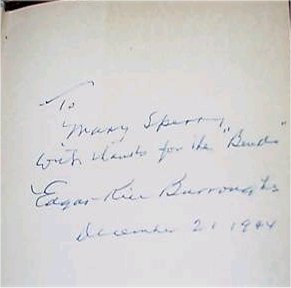 To
Mary Sperry
With thanks for the "Bends"
Edgar Rice Burroughs
December 21 1944